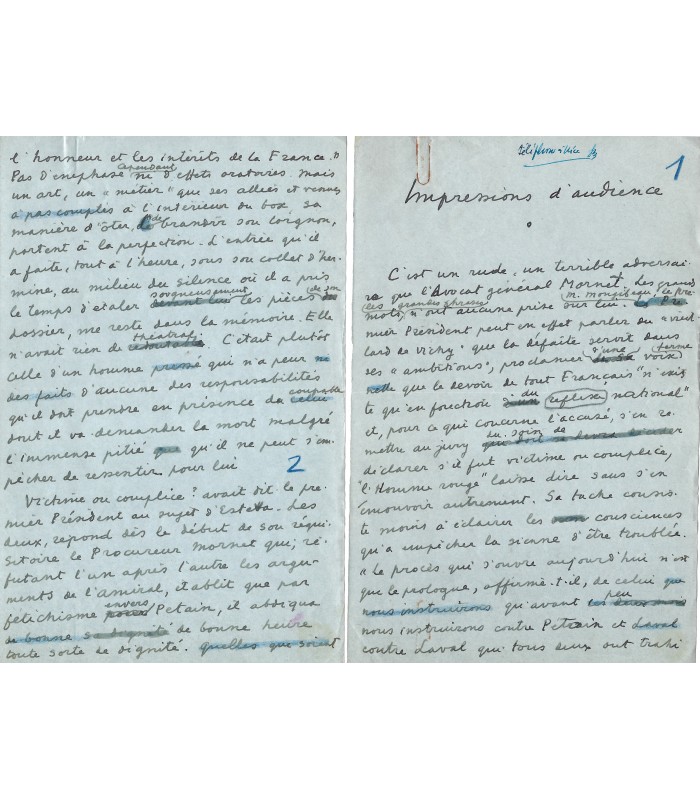 1
Impressions d'audience
C'est un rude, un terrible adversai-
re que l'Avocat général Mornet. Les grands
mots (les grandes phrases) n'ont aucune prise sur lui. M. Mongibeau, le pre-
mier Président peut en effet parler du "vieil-
lard de Vichy" que la défaite servit dans
ses "ambitions", proclamer d'une voix terne
que le devoir de tout Français "n'exis-
te qu'en fonction du réflexe national"
et, pour ce qui concerne l'accusé, s'en re-
mettre au jury du soin de
déclarer s'il fut victime ou complice,
"l'Homme rouge" laisse dire sans s'en
émouvoir autrement. Sa tache consis-
te moins à éclairer les consciences
qu'a empêcher la sienne d'être troublée.
"Le procès qui s'ouvre aujourd'hui n'est
que le prologue, affirme-t-il, de celui que
nous instruirons qu'avant peu
nous instruirons contre Petain et Laval
contre Laval qui tous deux ont trahi
l'honneur et les intérêts de la France."
Pas d'emphase cependant ni d'effets oratoires. Mais
un art, un "métier" que ses allées et venues
à pas comptés à l'intérieur du box sa
manière d'ôter, de brandir son lorgnon,
portent à la perfection. L'entrée qu'il
a faite, tout à l'heure, sous son collet d'her-
mine, au milieu du silence où il a pris
le temps d'étaler soigneusement les pièces de son
dossier, me reste dans la mémoire. Elle
n'avait rien de théatral. C'était plutôt
celle d'un homme qui n'a peur ni
des faits d'aucune des responsabilités
qu'il doit prendre en présence du coupable
dont il va demander la mort malgré
l'immense pitié qu'il ne peut s'em-
pêcher de ressentir pour lui
2
Victime ou complice? avait dit le pre-
mier Président au sujet d'Esteva. Les
deux, répond dès le début de son réqui-
sitoire le Procureur Mornet qui, ré-
futant l'un après l'autre les argu-
ments de l'amiral, établit que par
fétichisme envers Petain, il abdiqua
de bonne heure
toute sorte de dignité. quelles que soient